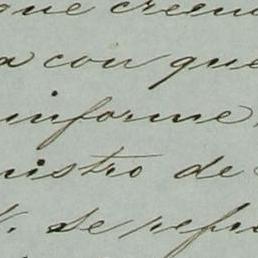 que creen
a con que
informe
nistro de
V. se refi